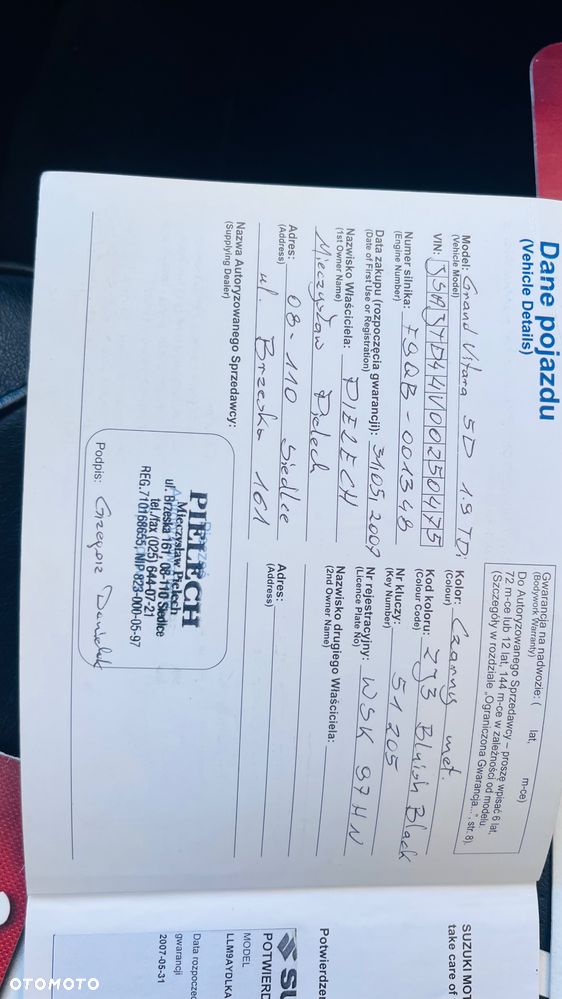 Dane pojazdu
(Vehicle Details)
Model: Grand Vitara 5D 1.9 TDi
(Vehicle Model)
VIN: JSAJTD44V00250475
Numer silnika: F9QB-001348
(Engine Number)
Data zakupu (rozpoczęcia gwarancji): 31.05.2007
(Date of First Use or Registration)
Nazwisko Właściciela: PIELECH
(1st Owner Name)
Mieczysław Pielech
Adres: 08-110 Siedlce
(Address)
ul. Brzeska 161
Nazwa Autoryzowanego Sprzedawcy:
(Supplying Dealer)
PIELECH
Mieczysław Pielech
ul. Brzeska 161, 08-110 Siedlce
tel./fax (025) 644-07-21
REG.710168655, NIP 823-000-05-97
Podpis: Grzegorz
Gwarancja na nadwozie: ( lat, m-ce)
(Bodywork Warranty)
Do Autoryzowanego Sprzedawcy – proszę wpisać 6 lat,
72 m-ce lub 12 lat, 144 m-ce w zależności od modelu.
(Szczegóły w rozdziale „Ograniczona Gwarancja...", str. 8).
Kolor: Czarny met.
(Colour)
Kod koloru: ZJ3 Bluish Black
(Colour Code)
Nr kluczy: 51205
(Key Number)
Nr rejestracyjny: WSK 97HN
(Licence Plate No)
Nazwisko drugiego Właściciela:
(2nd Owner Name)
Adres:
(Address)
SUZUKI MOT
take care of
Potwierdzen
SU
POTWIERD
MODEL
LLM9AYDLKA
Data rozpoczęc
gwarancji
2007-05-31
OTOMOTO